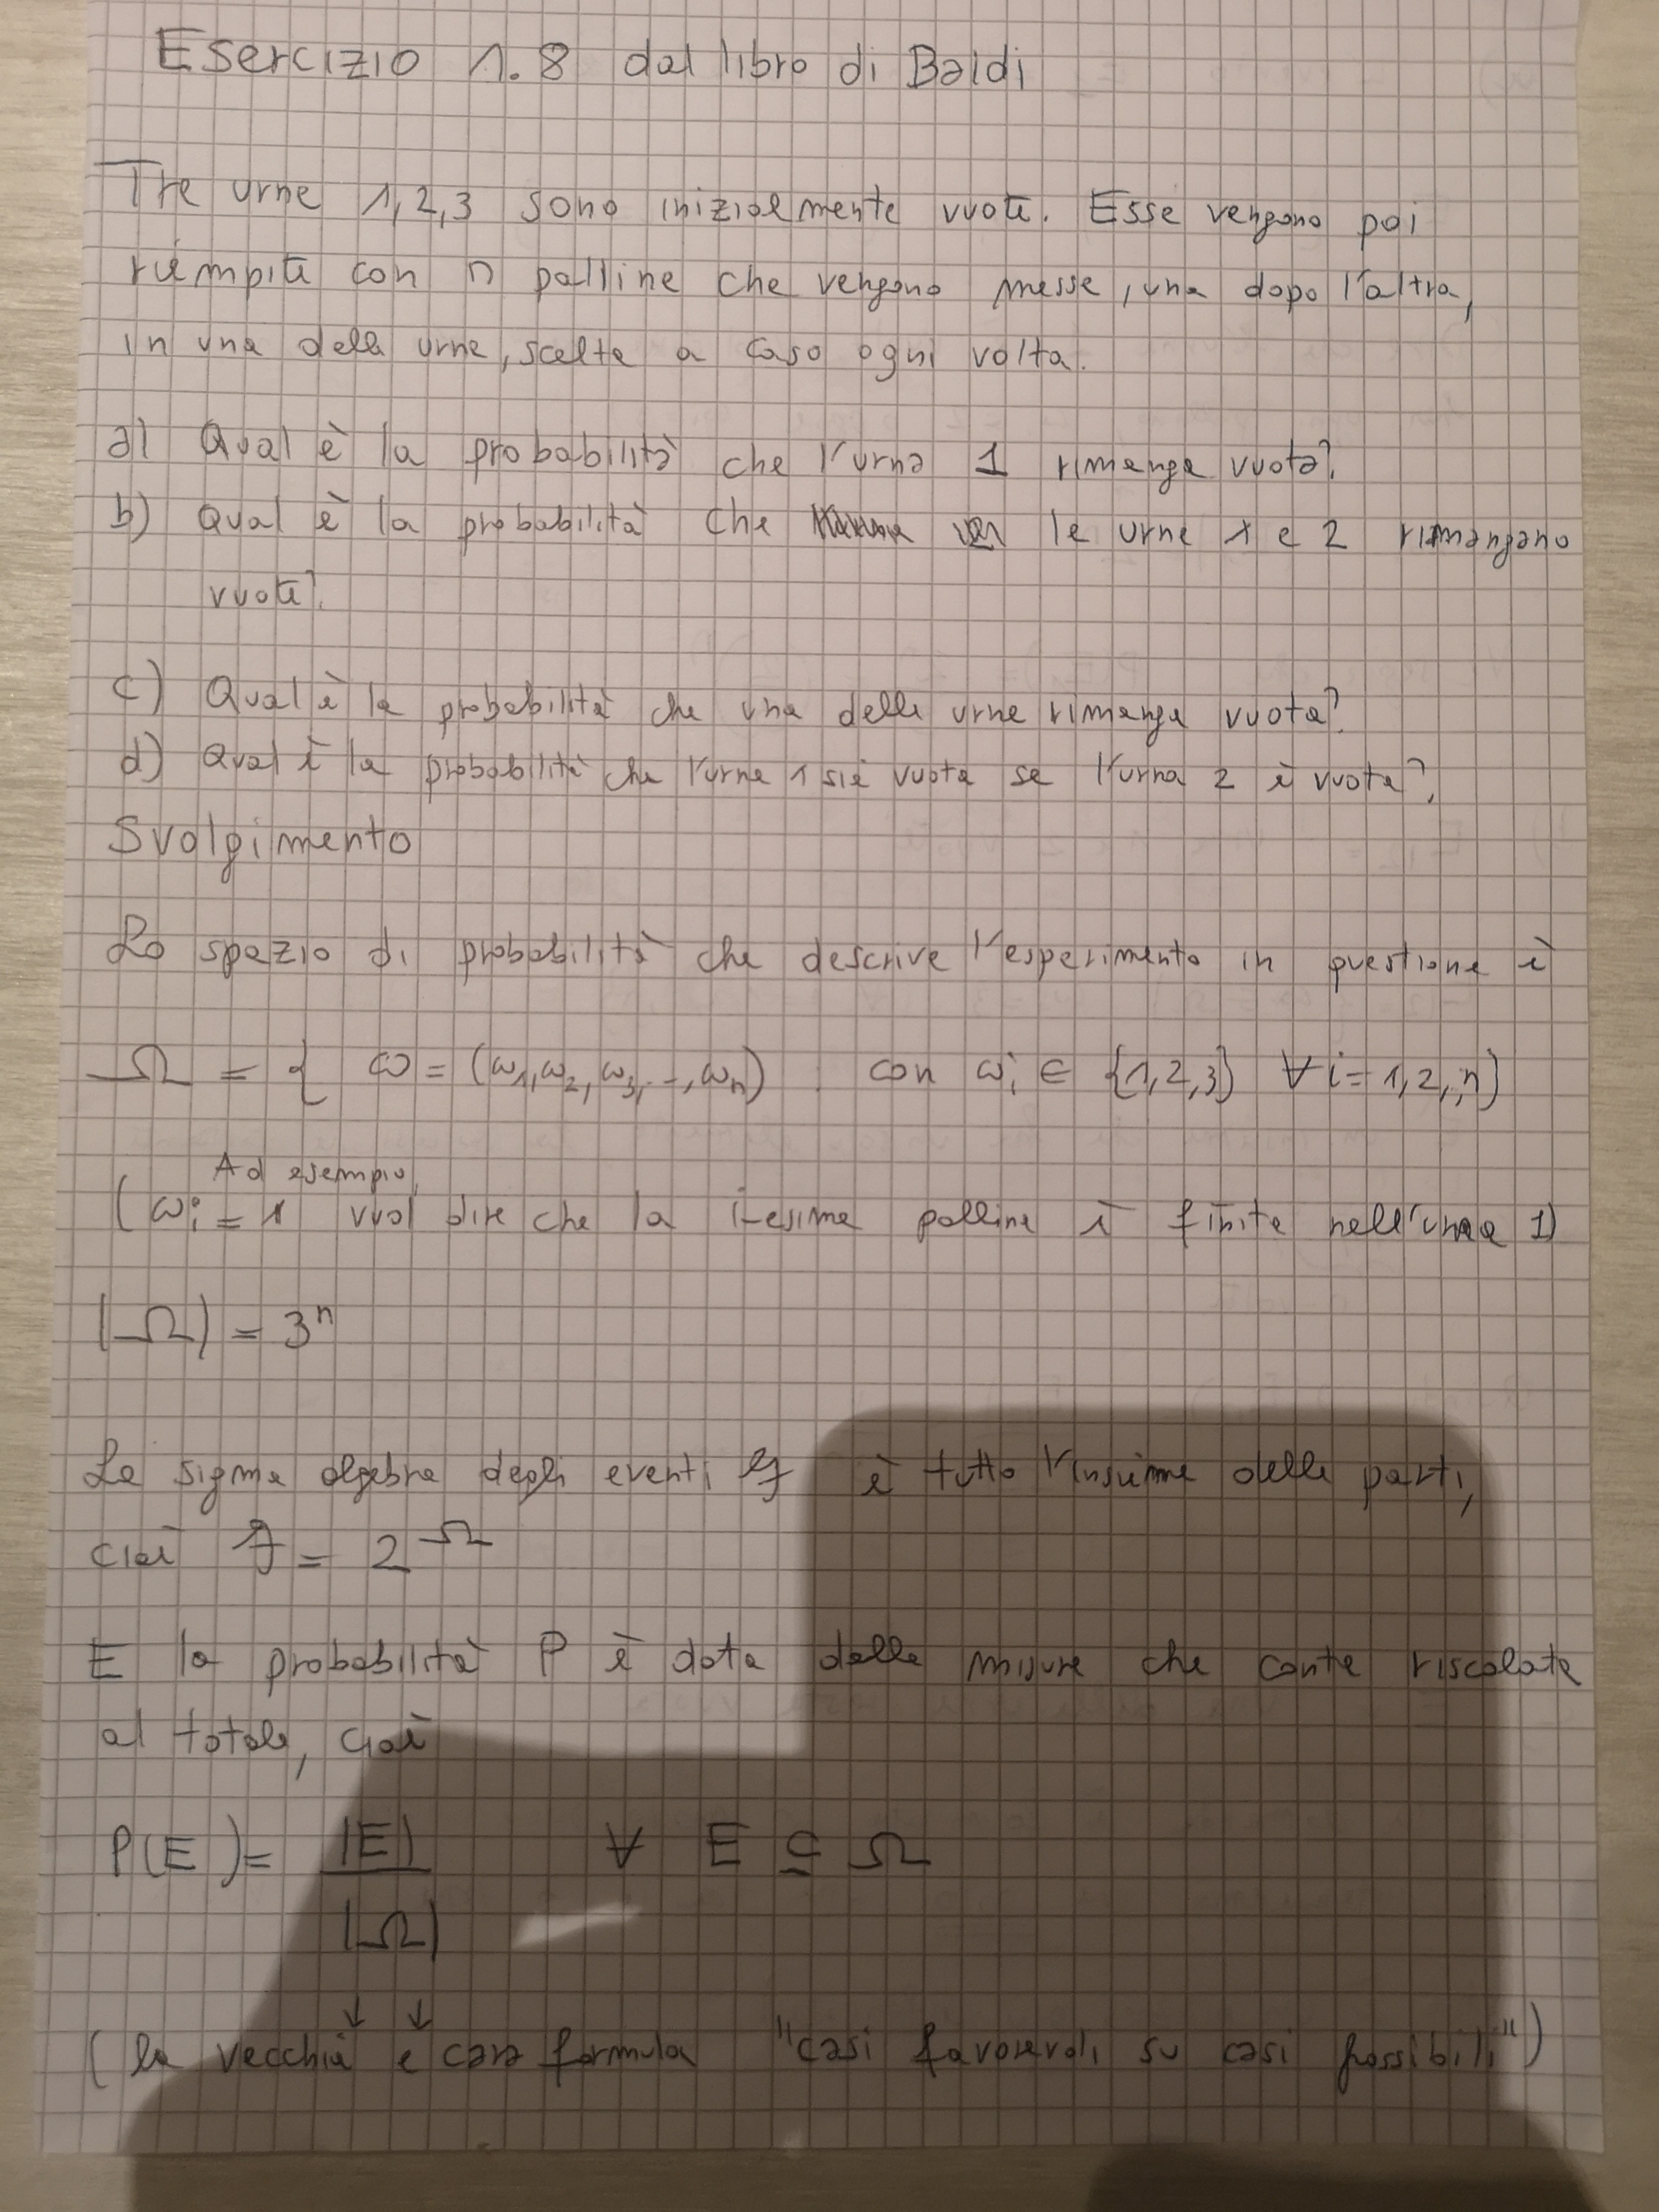 Esercizio 1.8 dal libro di Baldi
Tre urne 1,2,3 sono inizialmente vuote. Esse vengono poi
riempite con n palline che vengono messe, una dopo l'altra,
in una delle urne, scelta a caso ogni volta.
a) Qual è la probabilità che l'urna 1 rimanga vuota?
b) Qual è la probabilità che le urne 1 e 2 rimangano
vuote?
c) Qual è la probabilità che una delle urne rimanga vuota?
d) Qual è la probabilità che l'urna 1 sia vuota se l'urna 2 è vuota?
Svolgimento
Lo spazio di probabilità che descrive l'esperimento in questione è
Ω = { ω = (ω₁,ω₂,ω₃,..,ωₙ) : con ωᵢ ∈ {1,2,3} ∀ i = 1,2,..,n}
Ad esempio,
(ωᵢ = 1 vuol dire che la i-esima pallina è finita nell'urna 1)
|Ω| = 3ⁿ
La sigma algebra degli eventi F è tutto l'insieme delle parti,
cioè F = 2^Ω
E la probabilità P è data dalla misura che conta riscalata
al totale, cioè
P(E) = |E| / |Ω| ∀ E ⊆ Ω
(la vecchia e cara formula "casi favorevoli su casi possibili")